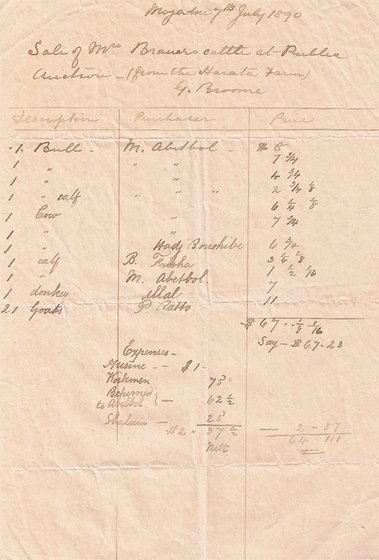 Mogador 7th July 1890
Sale of Mrs Brauers cattle at Public
Auction - (from the Harata Farm)
G. Broome
Description Purchaser Price
1 Bull - M. Abitbol - $ 5
1 " " " 7 3/4
1 " " " 4 3/4
1 " calf " " " 2 3/4 1/8
1 Cow " 6 1/4 1/8
1 " " 7 3/4
1 " Hadj Boushibe 6 3/4
1 calf B. Frisha 3 1/8 1/8
1 " M. Abitbol 1 1/2 1/16
1 donkey Allal 7
21 Goats P. Ratto 11
$ 67 - 1/8 1/16
Say - $ 67-23
Expenses -
- - $ 1 -
Workmen 75
Returned
to Abitbol } - 62 1/2
Shalum - 25
$ 2 " 37 1/2 - 2 - 37
Nett 64